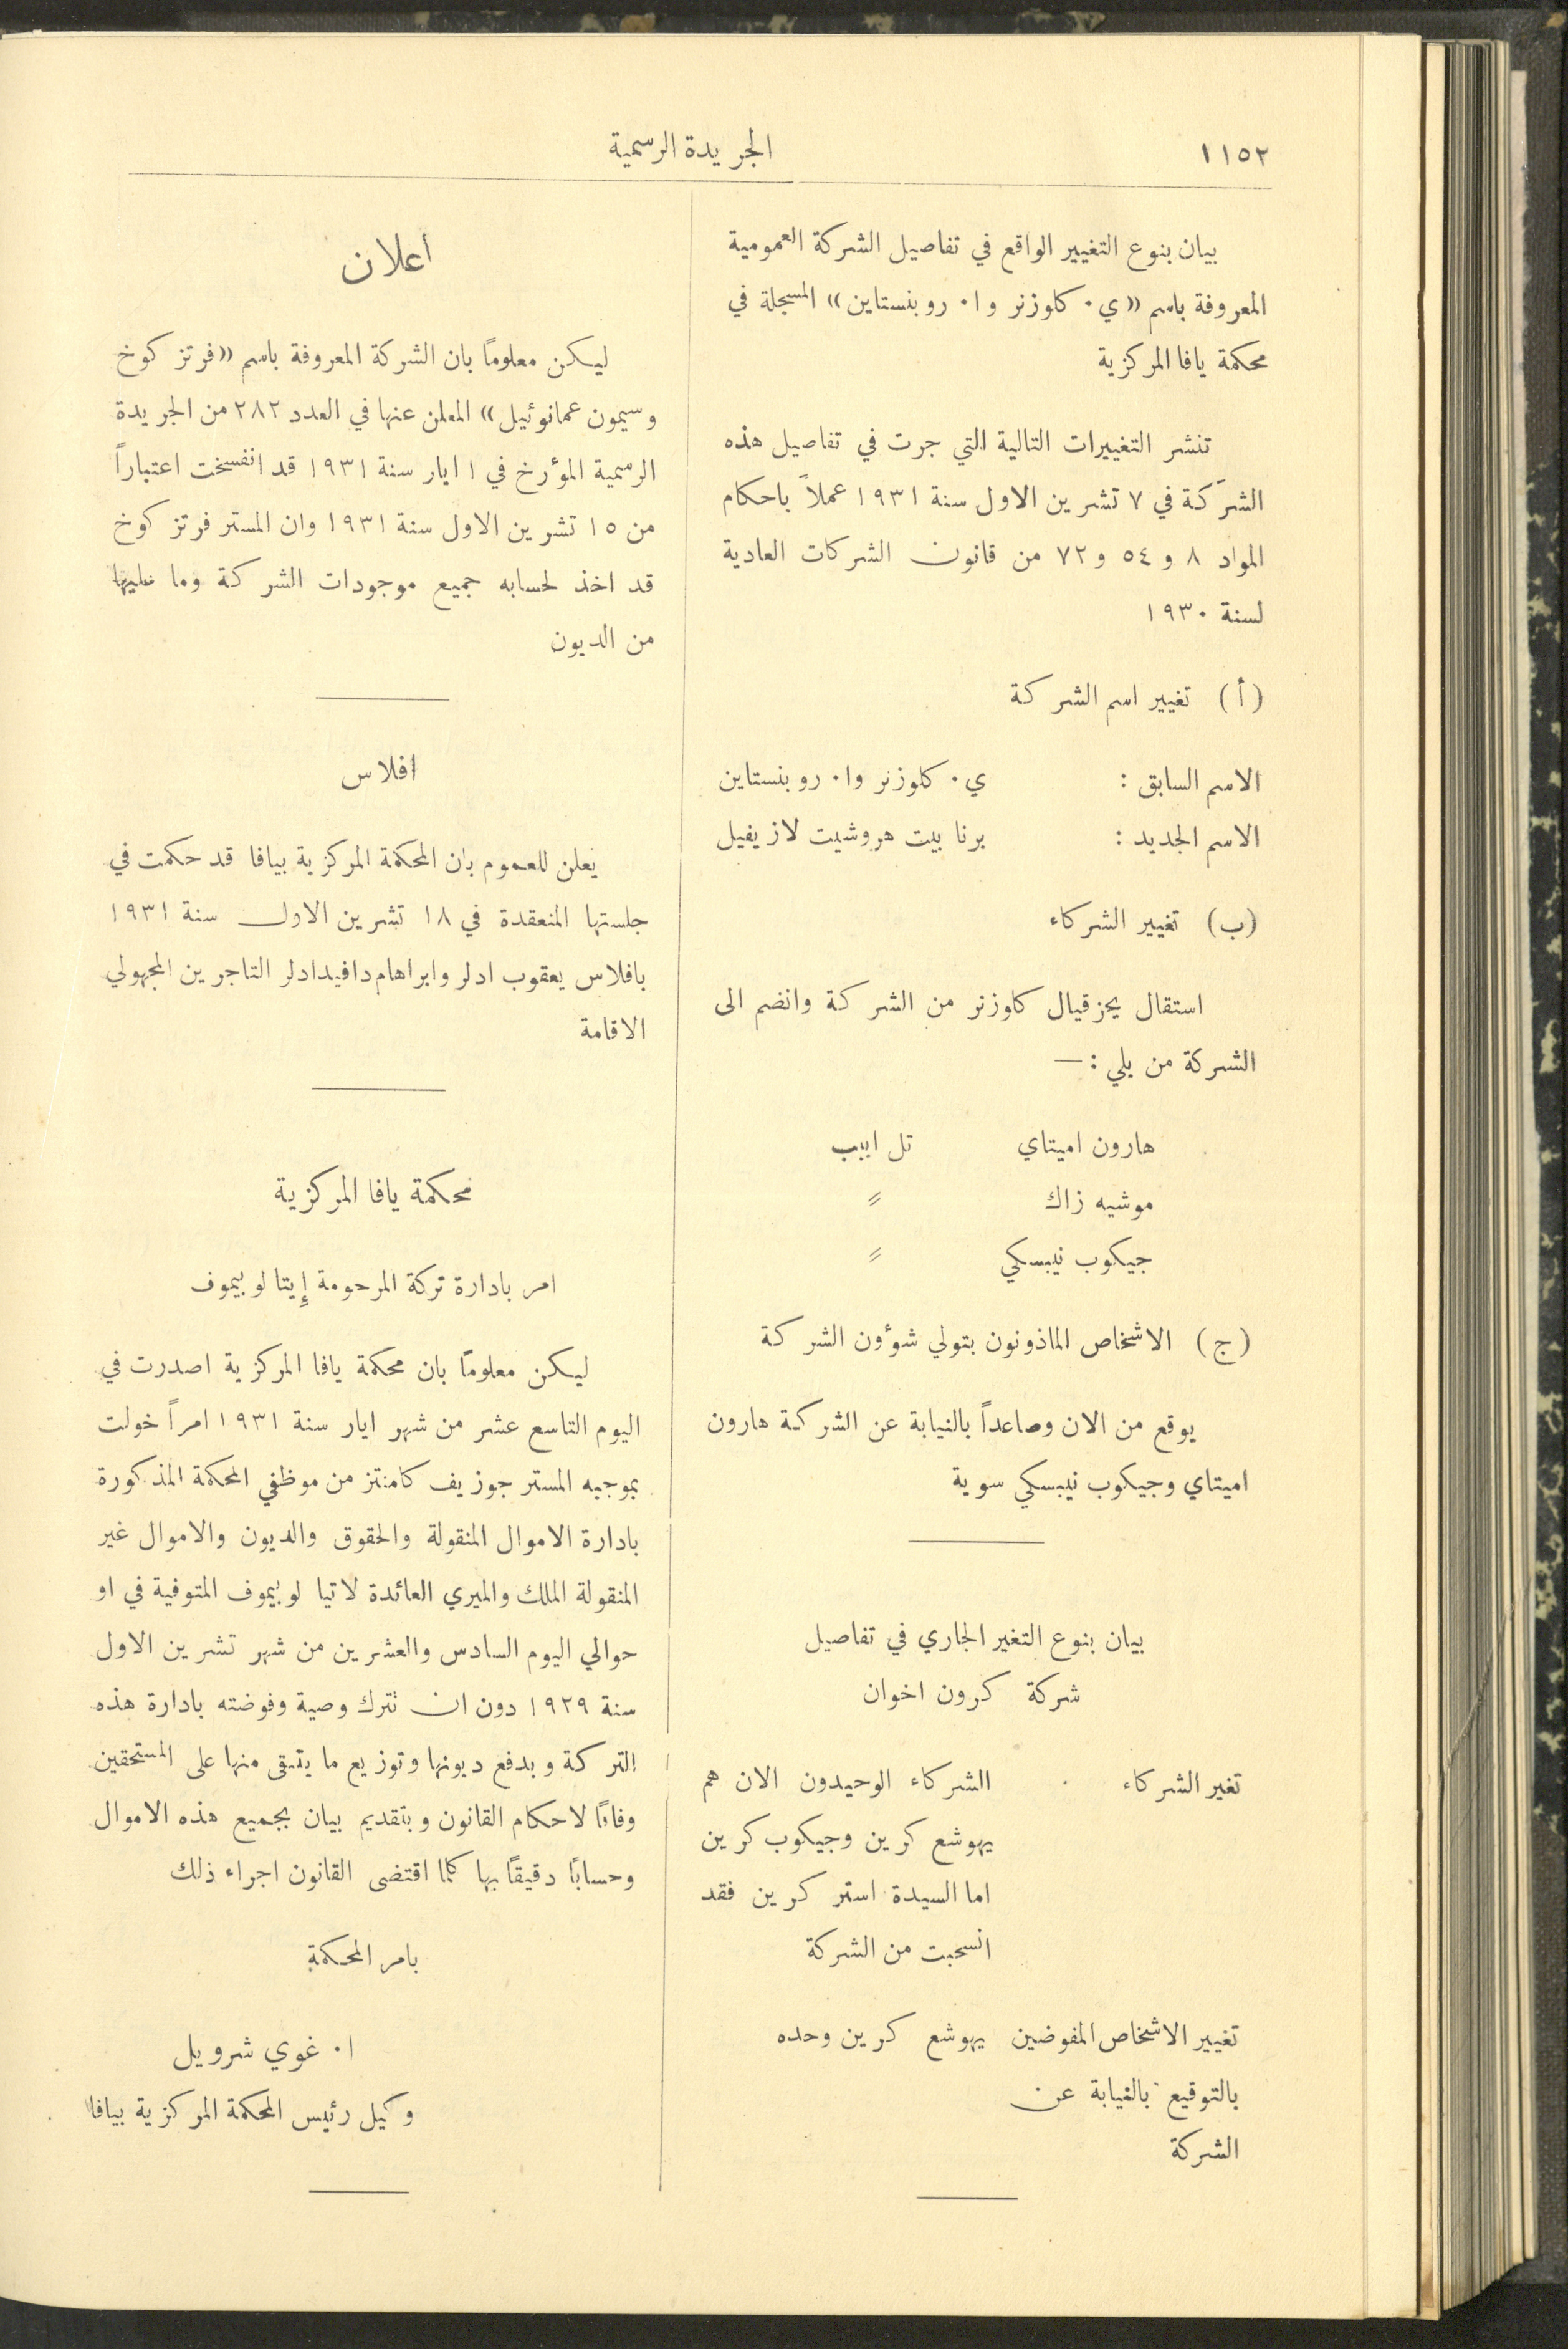 ١١٥٢
الجريدة الرسمية
بيان بنوع التغيير الواقع في تفاصيل الشركة العمومية
المعروفة باسم «ي. كلوزنر وا. روبنستاين» المسجلة في
محكمة يافا المركزية
تنشر التغييرات التالية التي جرت في تفاصيل هذه
الشركة في ٧ تشرين الاول سنة ١٩٣١ عملاً باحكام
المواد ٨ و ٥٤ و ٧٢ من قانون الشركات العادية
لسنة ١٩٣٠
(أ) تغيير اسم الشركة
الاسم السابق : ي. كلوزنر وا. روبنستاين
الاسم الجديد : برنا بيت هروشيت لازيفيل
(ب) تغيير الشركاء
استقال يحزقيال كلوزنر من الشركة وانضم الى
الشركة من يلي :—
هارون اميتاي تل ابيب
موشيه زاك 〃
جيكوب نيبسكي 〃
(ج) الاشخاص الماذونون بتولي شؤون الشركة
يوقع من الان وصاعداً بالنيابة عن الشركة هارون
اميتاي وجيكوب نيبسكي سوية
بيان بنوع التغير الجاري في تفاصيل
شركة كرون اخوان
تغير الشركاء الشركاء الوحيدون الان هم
يهوشع كرين وجيكوب كرين
اما السيدة استر كرين فقد
انسحبت من الشركة
تغيير الاشخاص المفوضين يهوشع كرين وحده
بالتوقيع بالنيابة عن
الشركة
اعلان
ليكن معلوماً بان الشركة المعروفة باسم «فرتز كوخ
وسيمون عمانوئيل» المعلن عنها في العدد ٢٨٢ من الجريدة
الرسمية المؤرخ في ١ ايار سنة ١٩٣١ قد انفسخت اعتباراً
من ١٥ تشرين الاول سنة ١٩٣١ وان المستر فرتز كوخ
قد اخذ لحسابه جميع موجودات الشركة وما عليها
من الديون
افلاس
يعلن للعموم بان المحكمة المركزية بيافا قد حكمت في
جلستها المنعقدة في ١٨ تشرين الاول سنة ١٩٣١
بافلاس يعقوب ادلر وابراهام دافيد ادلر التاجرين المجهولي
الاقامة
محكمة يافا المركزية
امر بادارة تركة المرحومة إيتا لوبيموف
ليكن معلوماً بان محكمة يافا المركزية اصدرت في
اليوم التاسع عشر من شهر ايار سنة ١٩٣١ امراً خولت
بموجبه المستر جوزيف كامنتز من موظفي المحكمة المذكورة
بادارة الاموال المنقولة والحقوق والديون والاموال غير
المنقولة الملك والميري العائدة لاتيا لوبيموف المتوفية في او
حوالي اليوم السادس والعشرين من شهر تشرين الاول
سنة ١٩٢٩ دون ان تترك وصية وفوضته بادارة هذه
التركة وبدفع ديونها وتوزيع ما يتبقى منها على المستحقين
وفاقًا لاحكام القانون وبتقديم بيان بجميع هذه الاموال
وحسابًا دقيقًا بها كلما اقتضى القانون اجراء ذلك
بامر المحكمة
ا. غوي شرويل
وكيل رئيس المحكمة المركزية بيافا